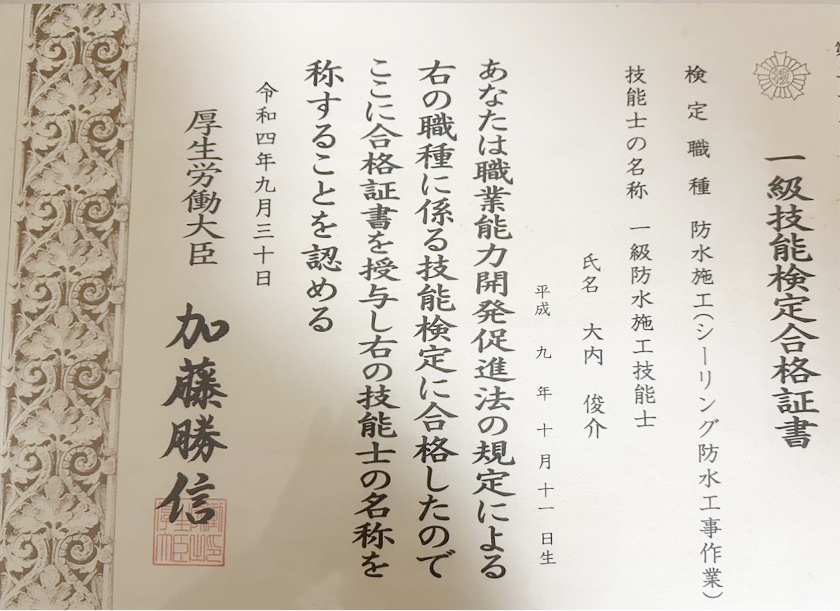 一級技能検定合格証書
検定職種 防水施工(シーリング防水工事作業)
技能士の名称 一級防水施工技能士
氏名 大内 俊介
平成 九 年 十 月 十一 日生
あなたは職業能力開発促進法の規定による
右の職種に係る技能検定に合格したので
ここに合格証書を授与し右の技能士の名称を
称することを認める
令和四年九月三十日
厚生労働大臣 加藤勝信